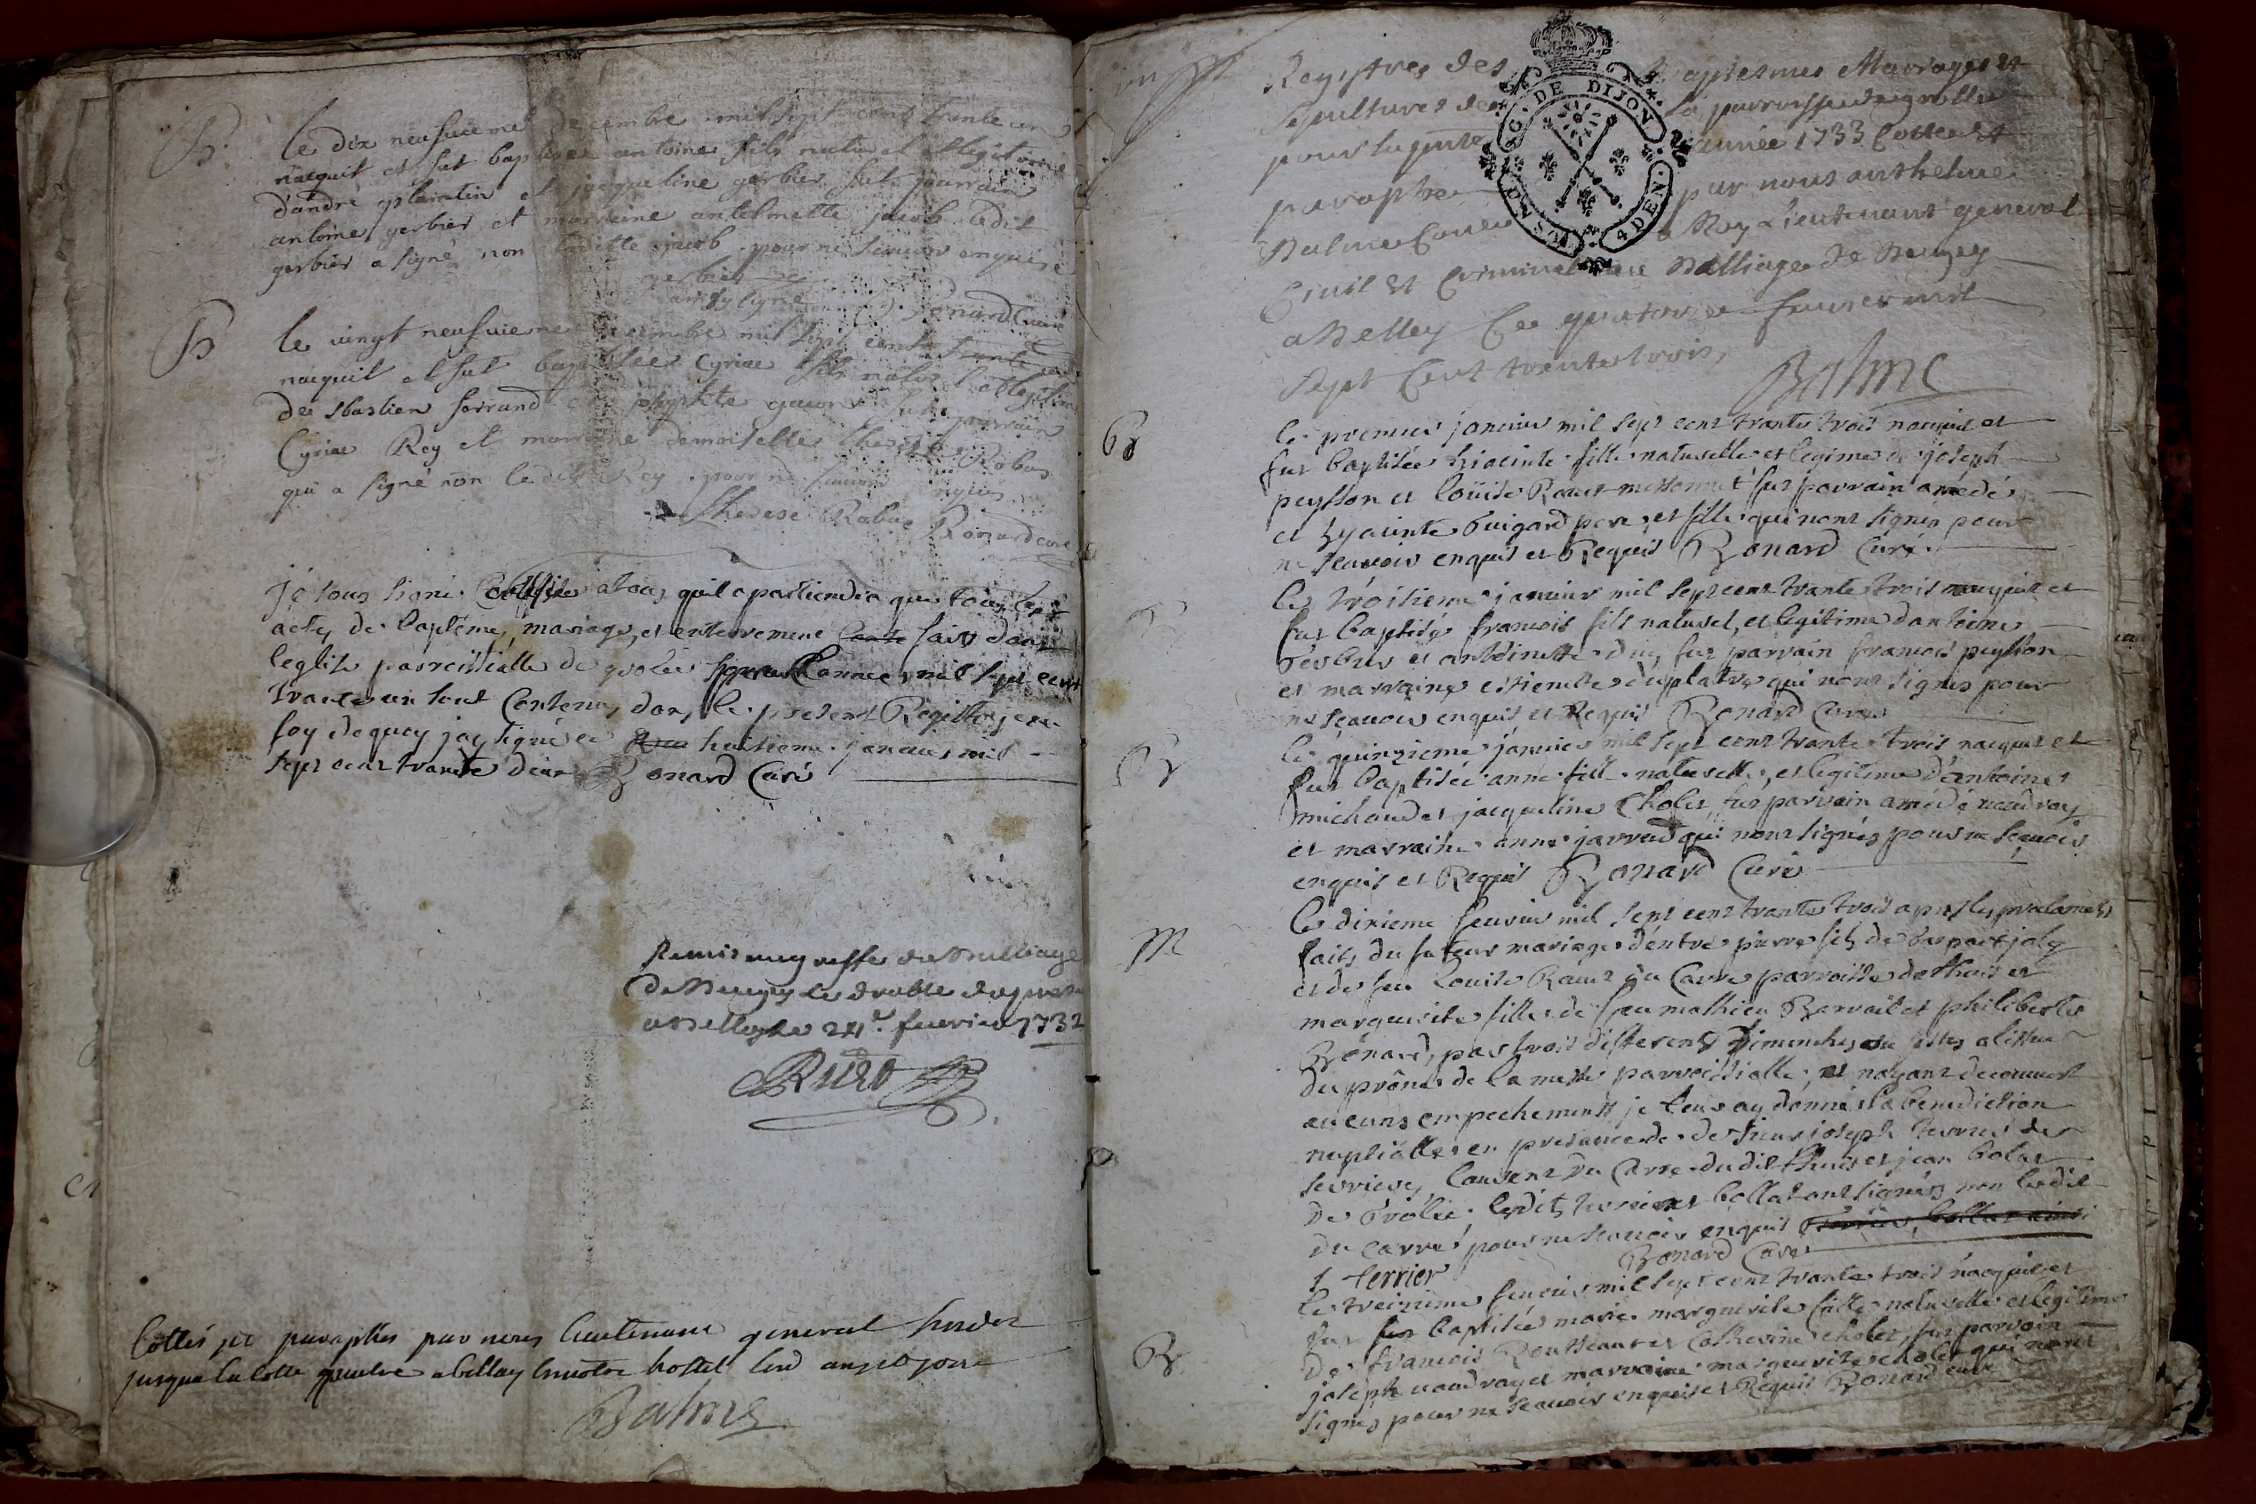 B
le dix neufuieme decembre mil sept cent trante un
nacquit et fut baptisee antoine fils naturel et legitime
dandré plantin et jacqueline gerbier fut parrain
antoine gerbier et marraine antelmette jacob ledit
gerbier a signé non laditte jacob pour ne scavoir enquise
gerbier
ainsy signé Bonard Curé
B
le vingt neufuieme decembre mil sept cents trente un
nacquit et fut baptisee Cyriac fils naturel et legitime
de sbastien ferrand et
Cyriac Rey et marraine demoiselle therese Rabut
qui a signé non ledit Rey pour ne scavoir enquis
Therese Rabut Bonard curé
je sous signé Certifie a tous quil apartiendra que tous les
actes de baptême, mariage, et enterrement faits dans
leglise parroissialle de grolée lannee mil sept cent
trante un sont Contenus dans le present Registre en
foy dequoy jay signé ce huitieme janvier mil
sept cent trante deux Bonard Curé
Remis au greffe du Bailliage
de Beugey le double du present
a Belley le 24e feuvrier 1732
Cottés et paraphés par nous lieutenant general
jusqua la cotte quatre a belley
Balme
Registres des Baptesmes Mariages et
sepultures de la parroisse de grollee
pour la pnte année 1733 Cottee et
paraphee par nous anthelme
Balme Coner du Roy Lieutenant general
Civil et Criminel au Balliage de Beugey
a Belley Ce quatorze feuver mil
sept Cent trente trois,
Balme
B
le premier janvier mil sept cent trante trois nacquit et
fut baptisée hiacinte fille naturelle et legime de joseph
peysson et louïse Roux fut parrain amedé
et hyacinte Guigard pere, et fille qui nont signés pour
ne scavoir enquis et Requis Bonard Curé.
B
le troisieme janvier mil sept cent trante trois nacquit et
fut baptisé francois fils naturel, et legitime dantoine
et antoinette fut parrain francois peysson
et marraine estienette duplatre qui nont signés pour
ne scavoir enquis et Requis Bonard Curé
B
le quinzieme janvier mil sept cent trante trois nacquit et
fut baptisée anne fille naturelle, et legitime d'antoine
michaud et jacqueline Cholet, fut parrain amédé vaudray
et marraine anne jarrad qui nont signés pour ne scavoir
enquis et Requis Bonard Curé
M
le dixieme feuvrier mil sept cent trante trois apres les proclamats
faits du futeur mariage d'entre pierre fils de gaspart joly
et de feu Louise Roux du Carre parroisse de thuis et
marguerite fille de feu mathieu Barvait et philiberte
Bonard, par trois differents dimenches ou festes a lissue
du prône de la messe parroissialle, et nayant decouvert
aucuns empechements je leur ay donnés la benediction
nuptialle en presance de sieur joseph terrier de
serrieres, Couvent du Carre dudit thuis et jean bolat
de Grolée lesdits terrier et bollat ont signés non ledit
du carré pour ne scavoir enquis
J terrier Bonard Curé
le treizieme feuvrier mil sept cent trante trois nacquit et
fut baptisée marie marguerite fille naturelle et legitime
de francois Rousseau et Catherine cholet, fut parrain
joseph vaudray et marraine marguerite cholet qui nont
signés pour ne scavoir enquis et Requis Bonard curé
B
G. DE DIJON
4 DEN.